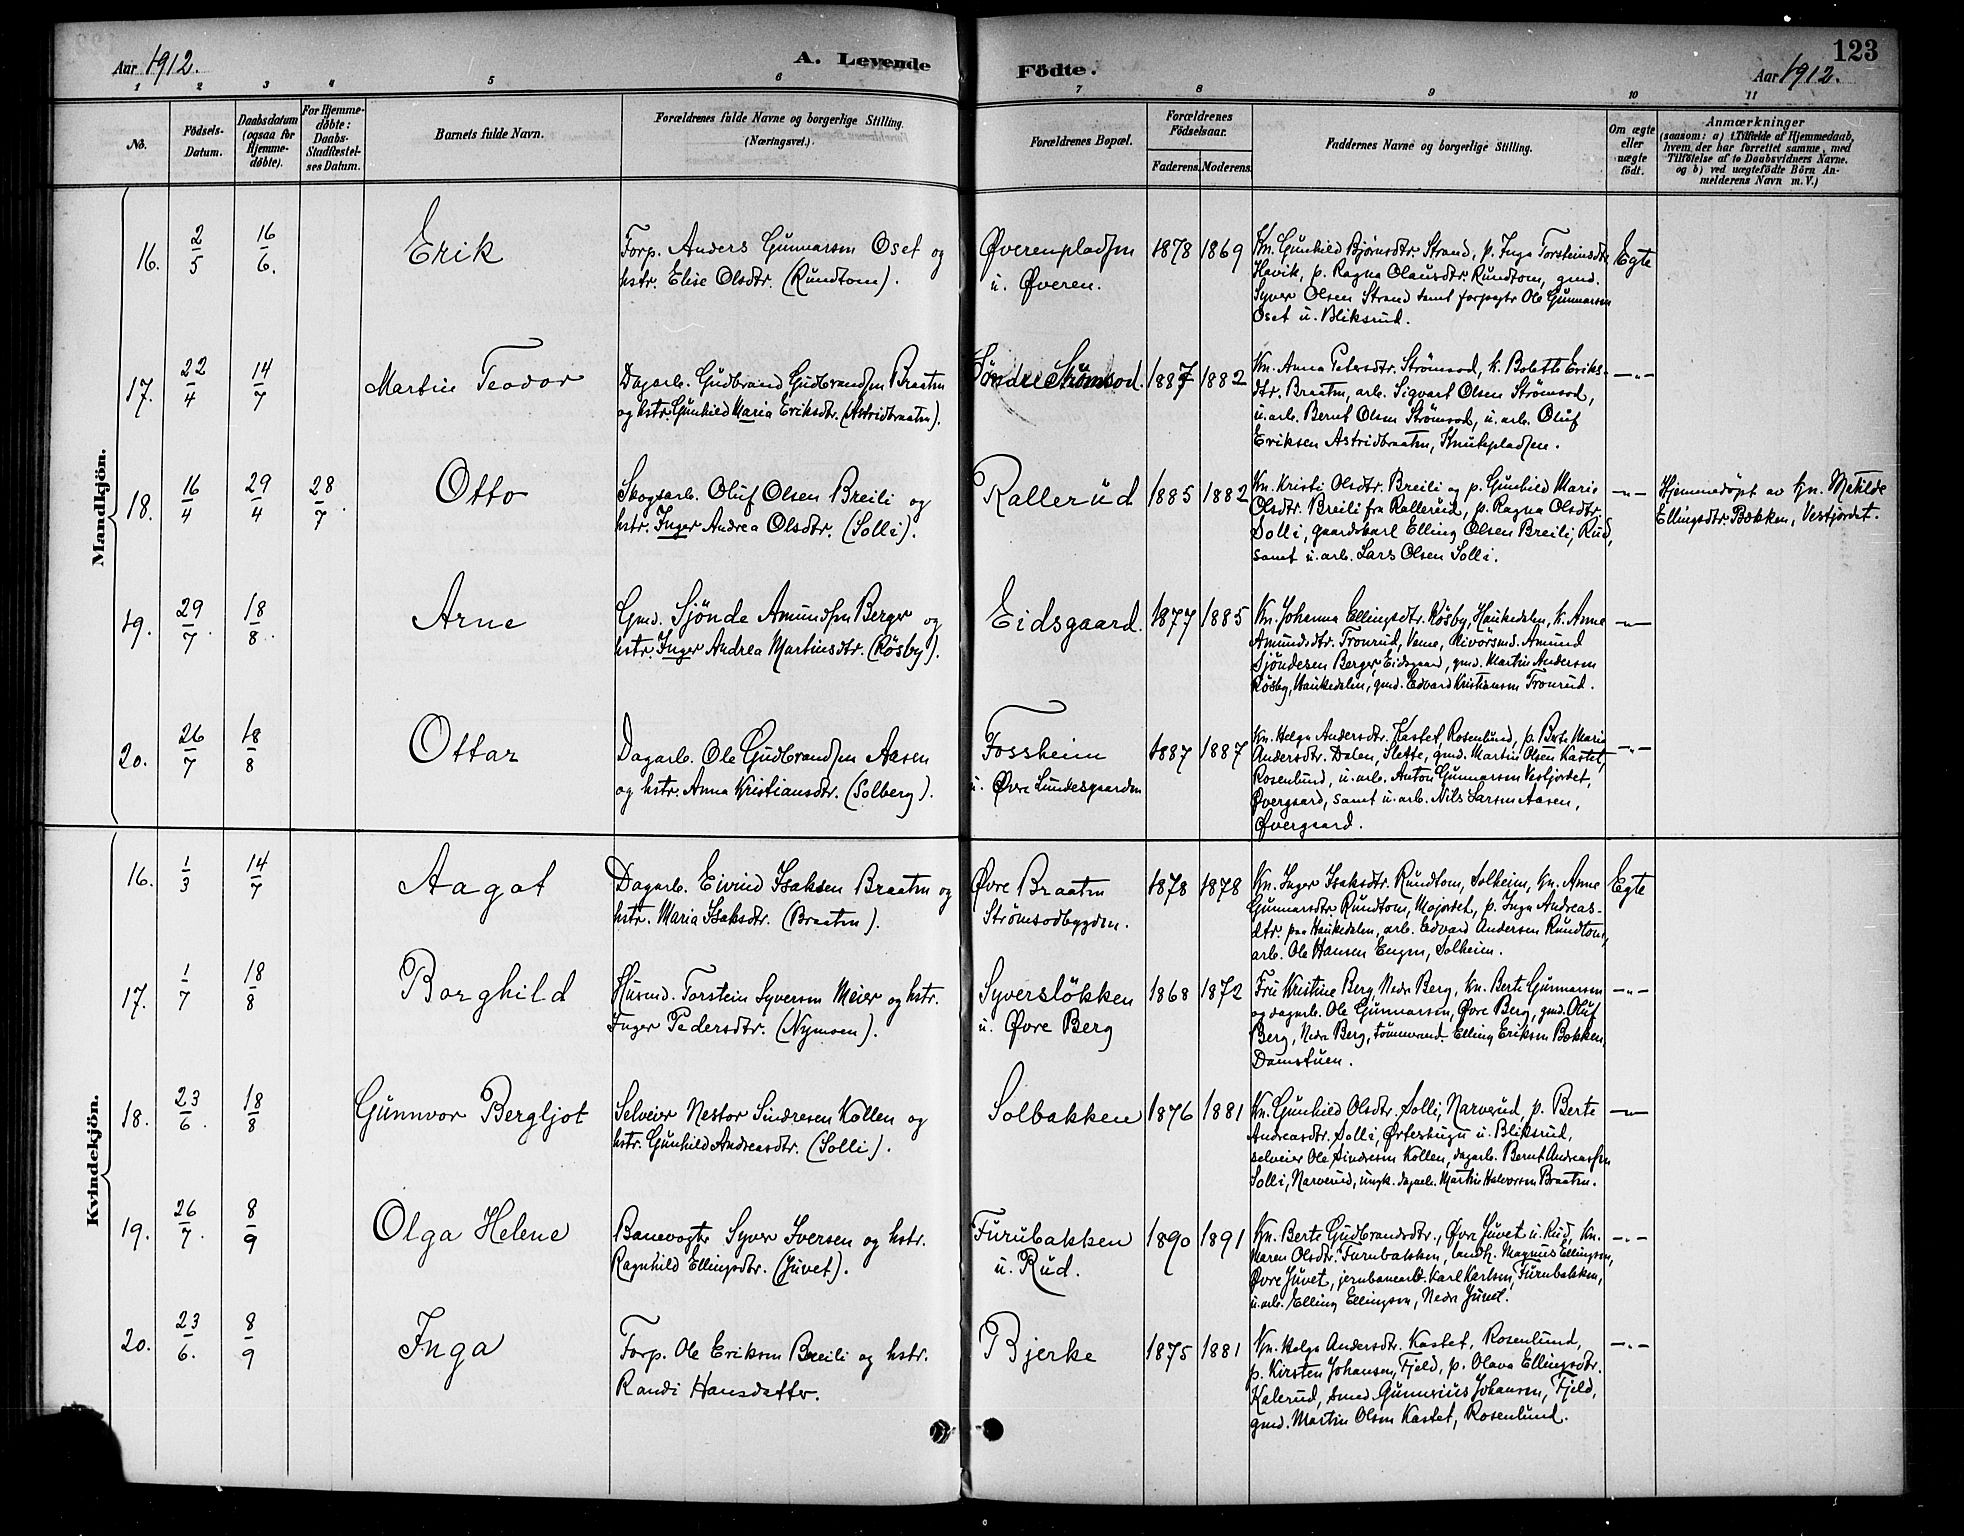 123
Aar 1912.
A. Levende
Födte.
Aar 1912.
1 2 3 4 5 6 7 8 9 10 11
No.
Födsels-
Datum.
Daabsdatum
(ogsaa for
Hjemme-
döbte).
For Hjemme-
döbte:
Daabs-
Stadfæstel-
ses Datum.
Barnets fulde Navn.
Forældrenes fulde Navne og borgerlige Stilling.
(Næringsvei.).
Forældrenes Bopæl.
Forældrenes
Födselsaar.
Faderens. Moderens.
Faddernes Navne og borgerlige Stilling.
Om ægte
eller
uægte
födt.
Anmærkninger
(saasom: a) i Tilfælde af Hjemmedaab,
hvem der har forrettet samme, med
Tilföielse af to Daabsvidners Navne.
og b) ved uægtefödte Börn An-
melderens Navn m. V.)
Mandkjön.
16. 2/5 16/6. Erik
Forp. Anders Gunnarsen Oset og
hstr. Elise Olsdtr. (Rundtom).
Øverenpladsen
u. Øveren.
1878 1869
Kn. Gunhild Bjørnsdtr. Strand, p. Inga Torsteinsdtr.
Havik, p. Ragna Olausdtr. Rundtom, gmd.
Syver Olsen Strand samt forpagtr Ole Gunnarsen
Oset u. Bliksrud.
Egte
17. 22/4 14/7 Martin Teodor
Dagarb. Gudbrand Gudbrandsen Braaten
og hstr. Gunhild Maria Eriksdtr. (Astridbraaten).
Söndre Strömsod.
1887 1882
Kn. Anna Petersdtr. Strömsod, k. Bolette Eriks-
dtr. Braaten, arb. Sigvart Olsen Strömsod,
u. arb. Bernt Olsen Strömsod, u. arb. Oluf
Eriksen Astridbraaten, Knutspladsen.
—"—
18. 16/4 29/4 28/7. Otto
Skogsarb. Oluf Olsen Breili og
hstr. Inger Andrea Olsdtr. (Solli).
Rallerud
1885 1882
Kn. Kristi Olsdtr. Breili og p. Gunhild Marie
Olsdtr. Breili fra Rallerud, p. Ragna Olsdtr.
Solli, gaardskarl Elling Olsen Breili, Rud,
samt u. arb. Lars Olsen Solli.
—"—
Hjemmedöpt av kn. Matilde
Ellingsdtr. Bækken, Vestjordet.
19. 29/7. 18/8. Arne
Gmd. Sjönde Amundsen Berger og
hstr. Inger Andrea Martinsdtr. (Rösby).
Eidsgaard.
1877 1885
Kn. Johanna Ellingsdtr. Rösby, Haukedalen, k. Anne
Amundsdtr. Tronrud, Veme, Amund
Sjöndesen Berger, Eidsgaard, gmd. Martin Andersen
Rösby, Haukedalen, gmd. Edvard Kristiansen Tronrud.
—"—
20. 26/7 18/8 Ottar
Dagarb. Ole Gudbrandsen Aasen
og hstr. Anna Kristiansdtr. (Solberg).
Fossheim
u. Øvre Lundesgaarden
1887 1887
Kn. Helga Andersdtr. Kastet, Rosenlund, p. Berte Marie
Andersdtr. Dalen, Slette, gmd. Martin Olsen Kastet,
Rosenlund, u. arb. Anton Gunnarsen Vestjordet,
Øvergaard, samt u. arb. Nils Larsen Aasen,
Øvergaard.
—"—
Kvindekjön.
16. 1/3 14/7 Aagot
Dagarb. Eivind Isaksen Braaten og
hstr. Maria Isaksdtr. (Braaten).
Øvre Braaten
Strömsodbygden.
1878 1878
Kn. Inger Isaksdtr. Rundtom, Solheim, kn. Anne
Gunnarsdtr Rundtom, Mojordet, p. Inga Andreas-
dtr. paa Haukedalen, arb. Edvard Andersen Rundtom,
arb. Ole Hansen Engen, Solheim.
Egte
17. 1/7 18/8 Borghild
Husmd. Torstein Syversen Meier og hstr.
Inger Pedersdtr. (Nymoen).
Syverslökken
u. Øvre Berg
1868 1872
Fru Kristine Berg, Nedre Berg, kn. Berte Gunnarsen
og dagarb. Ole Gunnarsen, Øvre Berg, gmd. Oluf
Berg, Nedre Berg, tömmermd. Elling Eriksen Bækken,
Damstuen.
—"—
18. 23/6. 18/8 Gunnvor Bergljot
Selveier Nestor Sindresen Kollen og
hstr. Gunhild Andreasdtr. (Solli).
Solbakken
1876 1881
Kn. Gunhild Olsdtr. Solli, Narverud, p. Berte
Andreasdtr. Solli, Ørterhugu u. Bliksrud,
selveier Ole Sindresen Kollen, dagarb. Bernt Andreassen
Solli, Narverud, ungk. dagarb. Martin Halvorsen Braaten.
—"—
19. 26/7. 8/9 Olga Helene
Banevogtr Syver Iversen og hstr.
Ragnhild Ellingsdtr. (Juvet).
Furubakken
u. Rud.
1890 1891
Kn. Berte Gudbrandsdtr., Øvre Juvet u. Rud, kn.
Maren Olsdtr. Furubakken, landh. Magnus Ellingsen,
Øvre Juvet, jernbanearb. Karl Karlsen, Furubakken,
u. arb. Elling Ellingsen, Nedre Juvet.
—"—
20. 23/6. 8/9 Inga
Forp. Ole Eriksen Breili og hstr.
Randi Hansdatter.
Bjerke
1875 1881
Kn. Helga Andersdtr. Kastet, Rosenlund,
p. Kirsten Johansen, Fjeld, p. Olava Ellingsdtr.
Kalerud, smed Gunnerius Johansen, Fjeld,
gmd. Martin Olsen Kastet, Rosenlund.
—"—